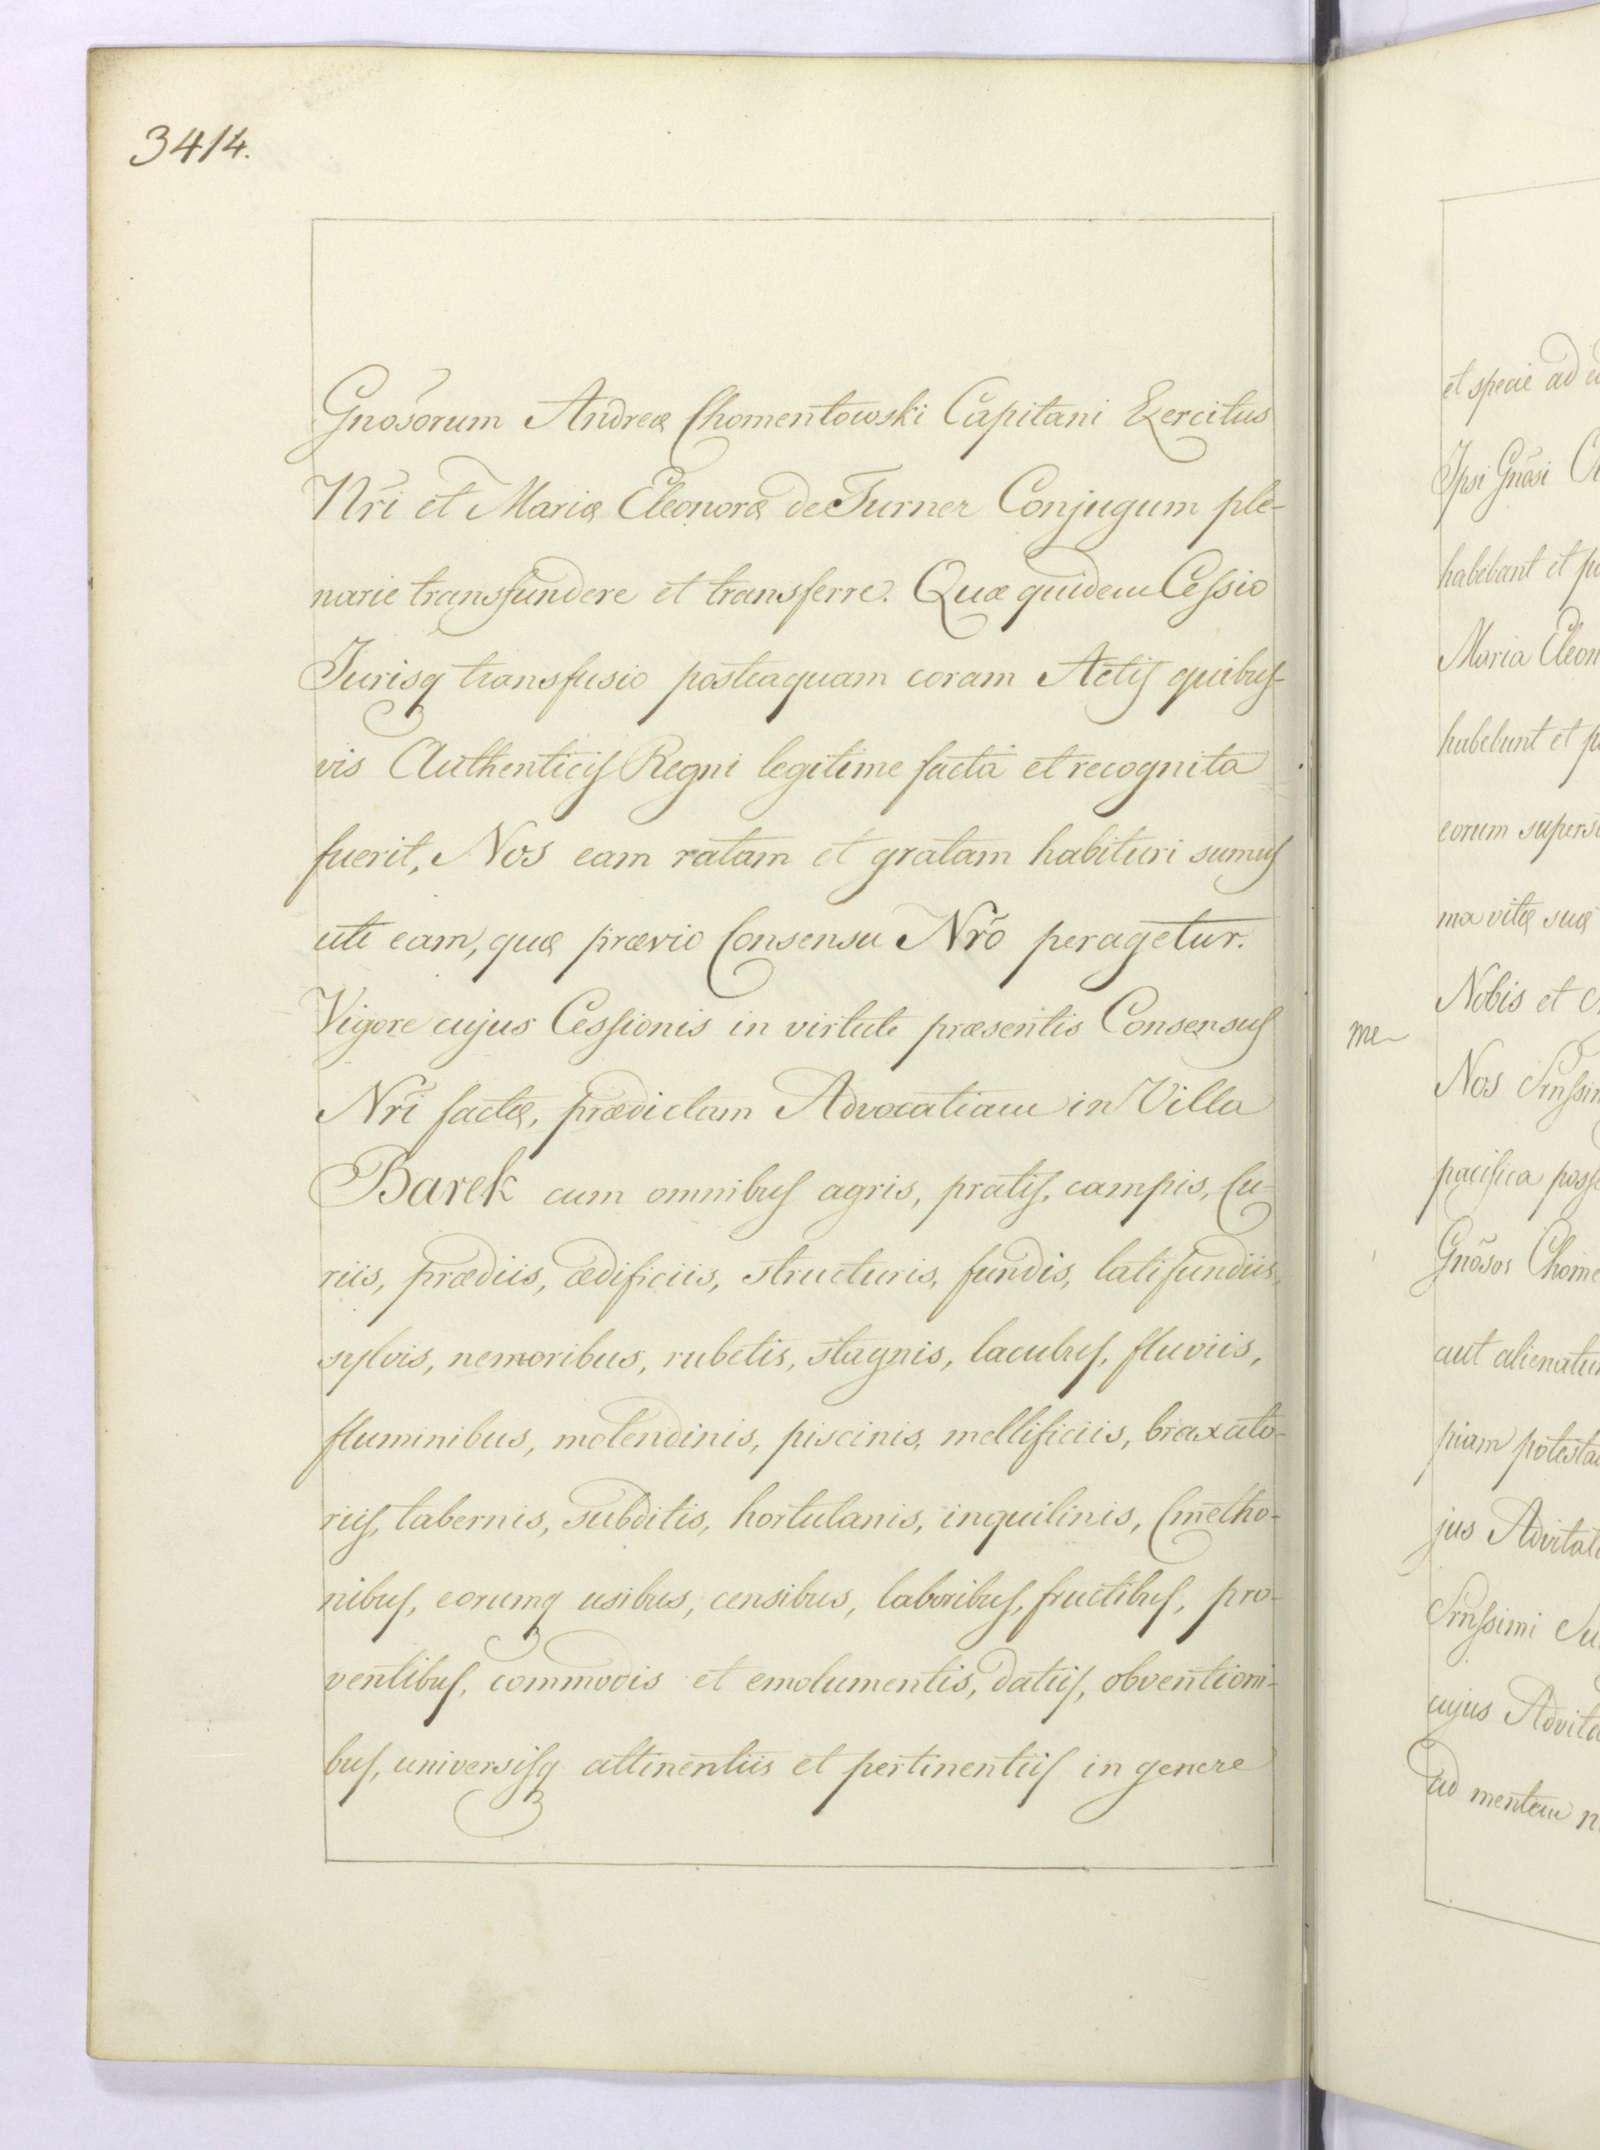 3414.
Gnõsorum Andreæ Chomentowski Capitani Exercitus
Nr̃i et Mariæ Eleonoræ de Turner Conjugum ple-
narie transfundere et transferre. Quæ quidem Cessio
Jurisq transfusio posteaquam coram Actis quibus-
vis Authenticis Regni legitime facta et recognita
fuerit, Nos eam ratam et gratam habituri sumus
uti eam, quæ prævio Consensu Nr̃o peragetur.
Vigore cujus Cessionis in virtute præsentis Consensus
Nr̃i factæ, prædictam Advocatiam in Villa
Barek cum omnibus agris, pratis, campis, Cu-
riis, prædiis, ædificiis, structuris, fundis, latifundiis,
sylvis, nemoribus, rubetis, stagnis, lacubus, fluviis,
fluminibus, molendinis, piscinis, mellificiis, braxato-
riis, tabernis, subditis, hortulanis, inquilinis, Cmetho-
nibus, eorumq usibus, censibus, laboribus, fructibus, pro-
ventibus, commodis et emolumentis, datiis, obventioni-
bus, universisq attinentiis et pertinentiis in genere
et specie ad
Ipsi Gnõsi
habebant et
Maria Eleon
habebunt et
eorum supers
ma vitæ suæ
Nobis et
me
Nos
pacifica poss
Gnõsos Chome
aut alienatu
piam potesta
jus Advitat
Srnssimi
cujus Advita
ad mentem